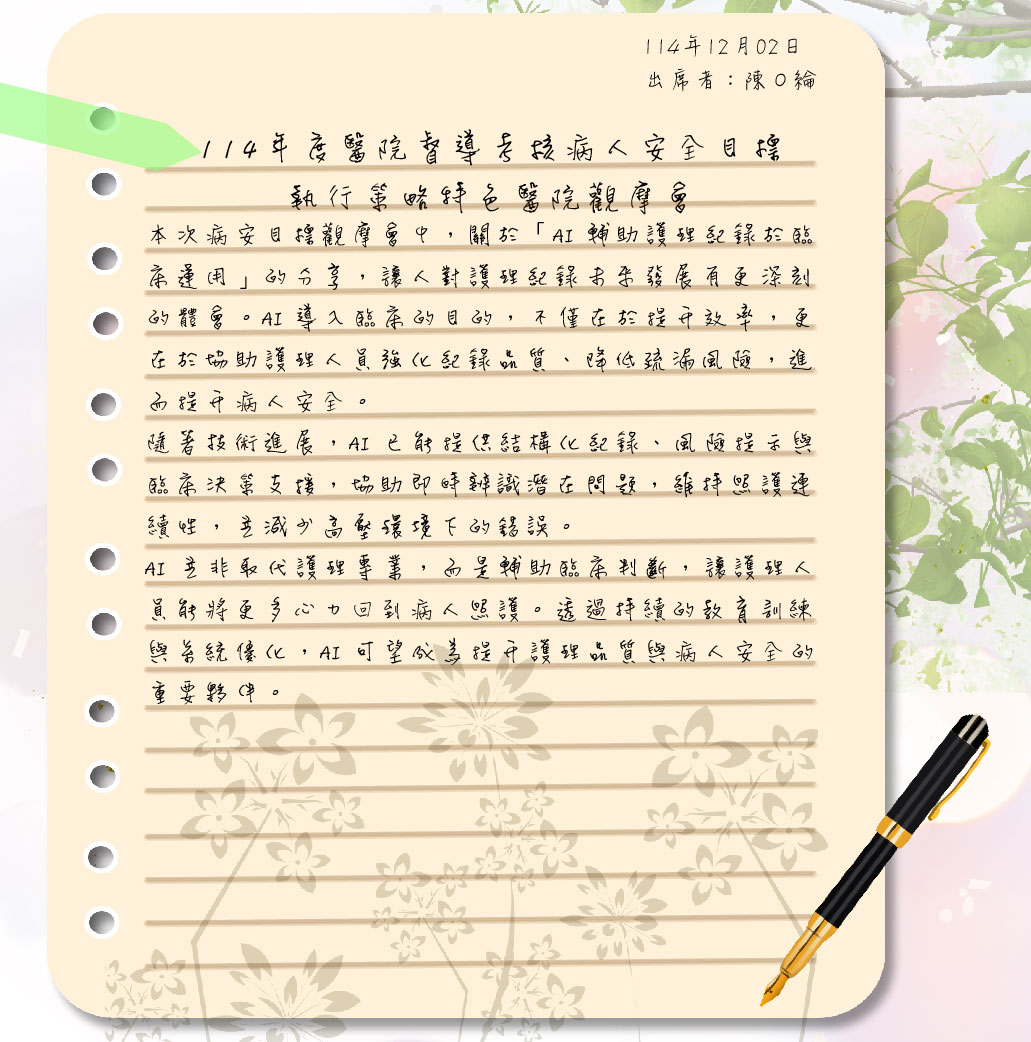 114年12月02日
出席者：陳O綸
114年度醫院督導考核病人安全目標
執行策略特色醫院觀摩會
本次病安目標觀摩會中，關於「AI 輔助護理紀錄於臨
床運用」的分享，讓人對護理紀錄未來發展有更深刻
的體會。AI 導入臨床的目的，不僅在於提升效率，更
在於協助護理人員強化紀錄品質、降低疏漏風險，進
而提升病人安全。
隨著技術進展，AI 已能提供結構化紀錄、風險提示與
臨床決策支援，協助即時辨識潛在問題，維持照護連
續性，並減少高壓環境下的錯誤。
AI 並非取代護理專業，而是輔助臨床判斷，讓護理人
員能將更多心力回到病人照護。透過持續的教育訓練
與系統優化，AI 可望成為提升護理品質與病人安全的
重要夥伴。